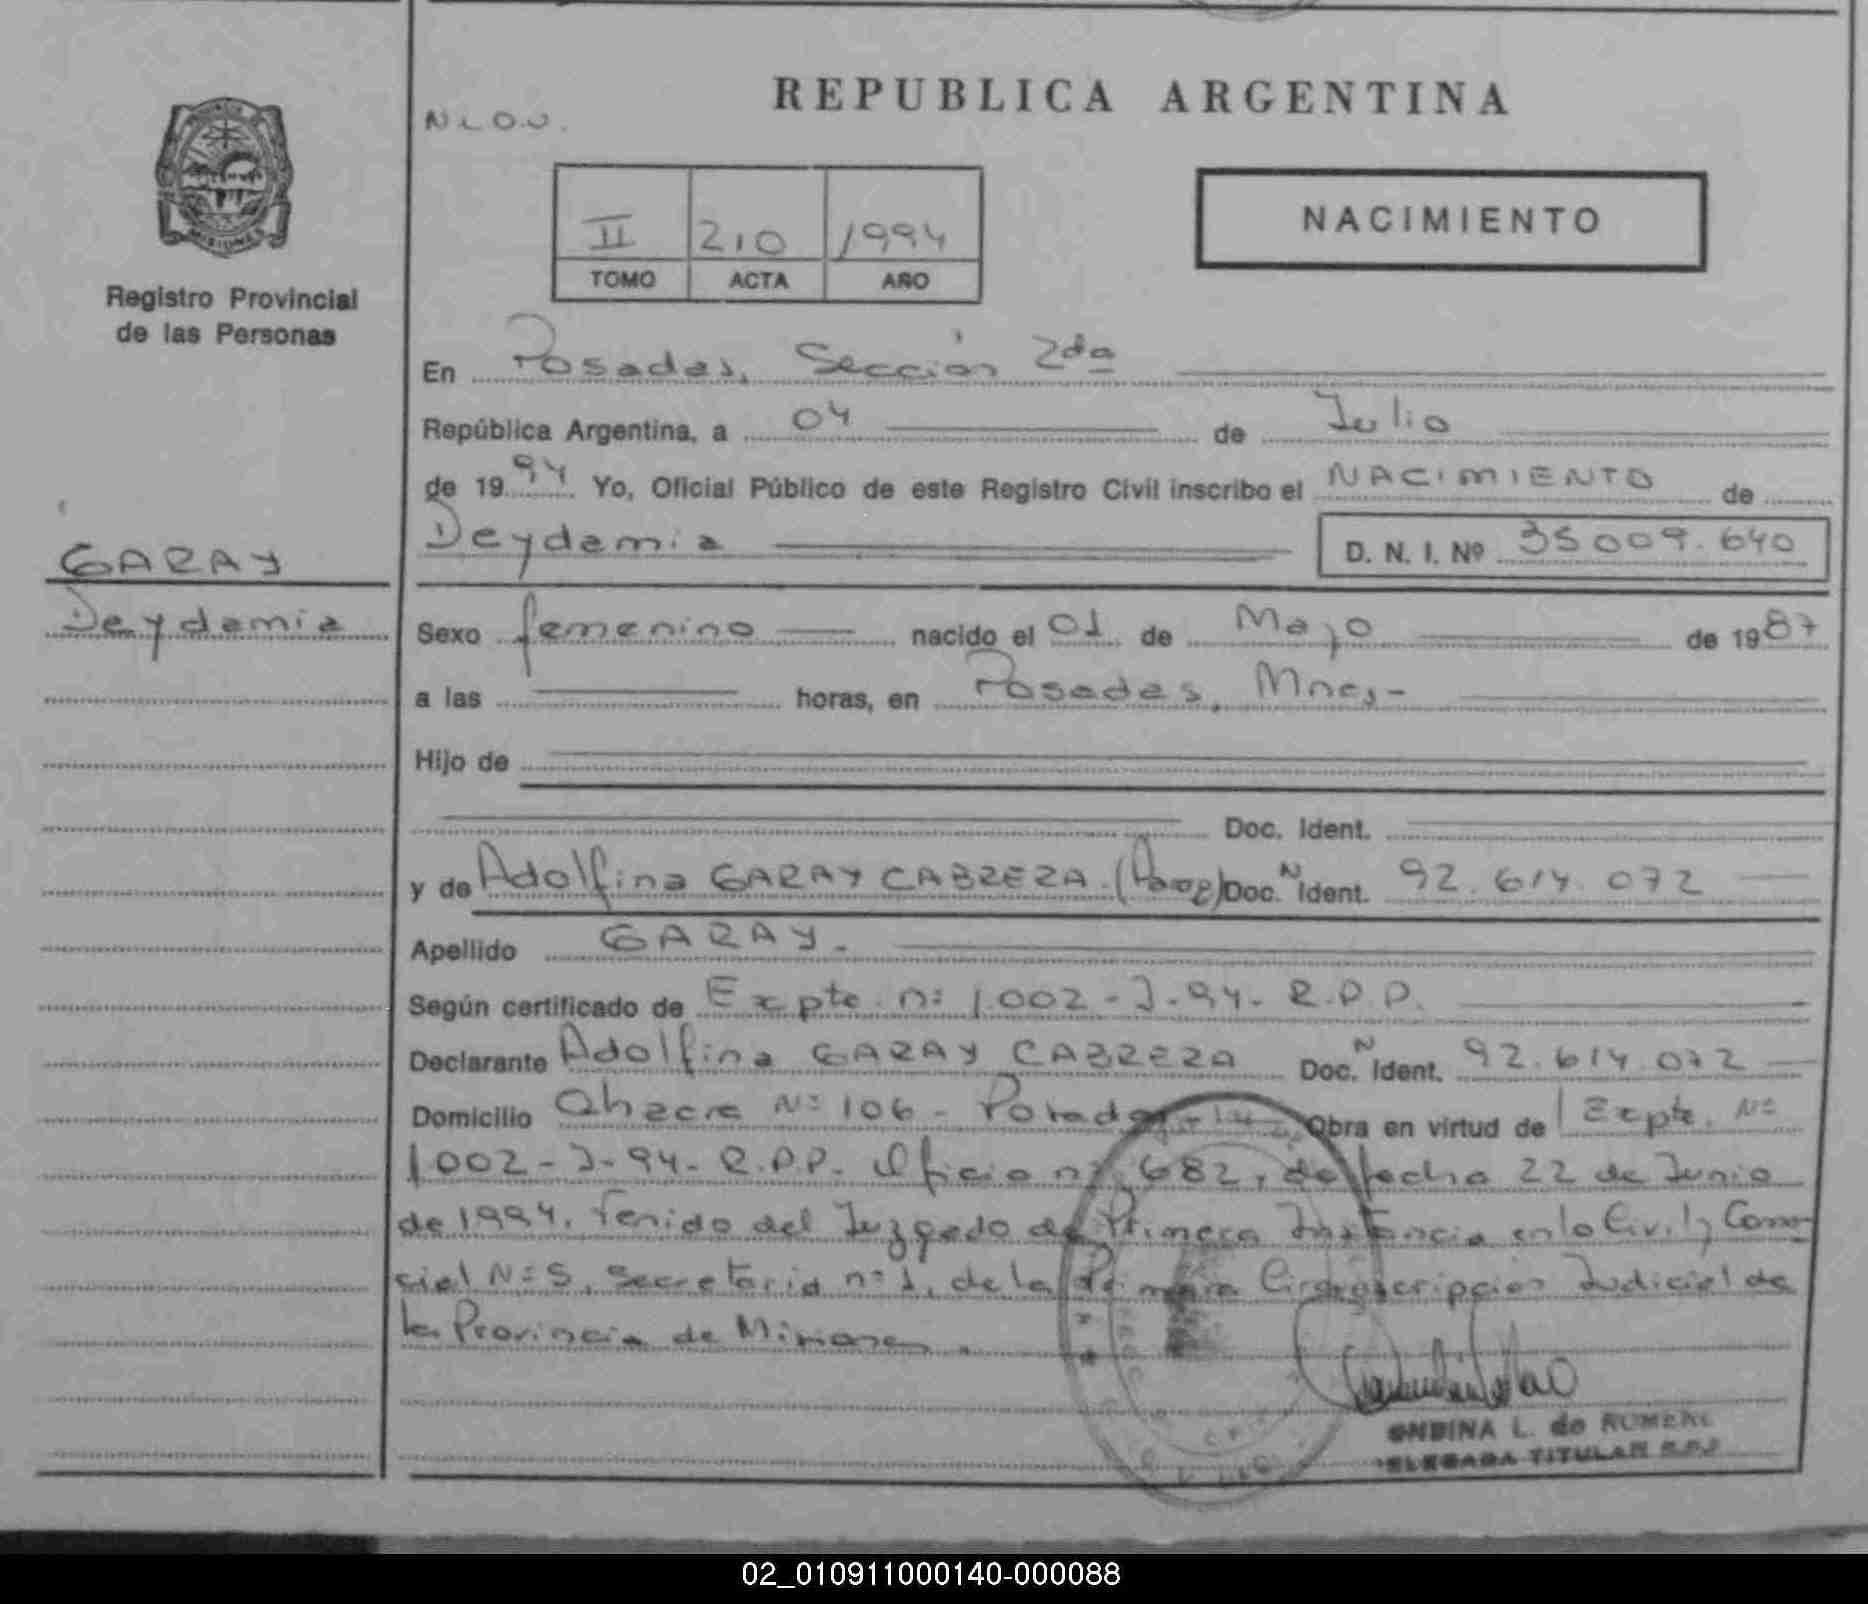 REPUBLICA ARGENTINA
MISIONES
Registro Provincial
de las Personas
II 210 1994
TOMO ACTA AÑO
NACIMIENTO
En Posadas, Sección 2da
República Argentina, a 04 de Julio
de 1994 Yo, Oficial Público de este Registro Civil inscribo el NACIMIENTO de
GARAY
Deydamia
Deydamia D. N. I. Nº 35 009.640
Sexo femenino nacido el 01 de Mayo de 1987
a las horas, en Posadas, Mnes-
Hijo de
Doc. Ident.
y de Adolfina GARAY CABRERA. Doc. N Ident. 92.614.072
Apellido GARAY.
Según certificado de Expte. nº 1.002-J-94- R.P.P.
Declarante Adolfina GARAY CABRERA Doc. N Ident. 92.614.072
Domicilio Chacra Nº 106 - Posadas Obra en virtud de Expte. Nº
1.002-J-94- R.P.P. Oficio nº 682, de fecha 22 de Junio
de 1994. Venido del Juzgado de Primera Instancia en lo Civil y Comer-
cial Nº 5, Secretaria nº 1, de la Primera Circunscripcion Judicial de
la Provincia de Misiones.
ONDINA L. de ROMERO
DELEGADA TITULAR R.P.P
02_010911000140-000088